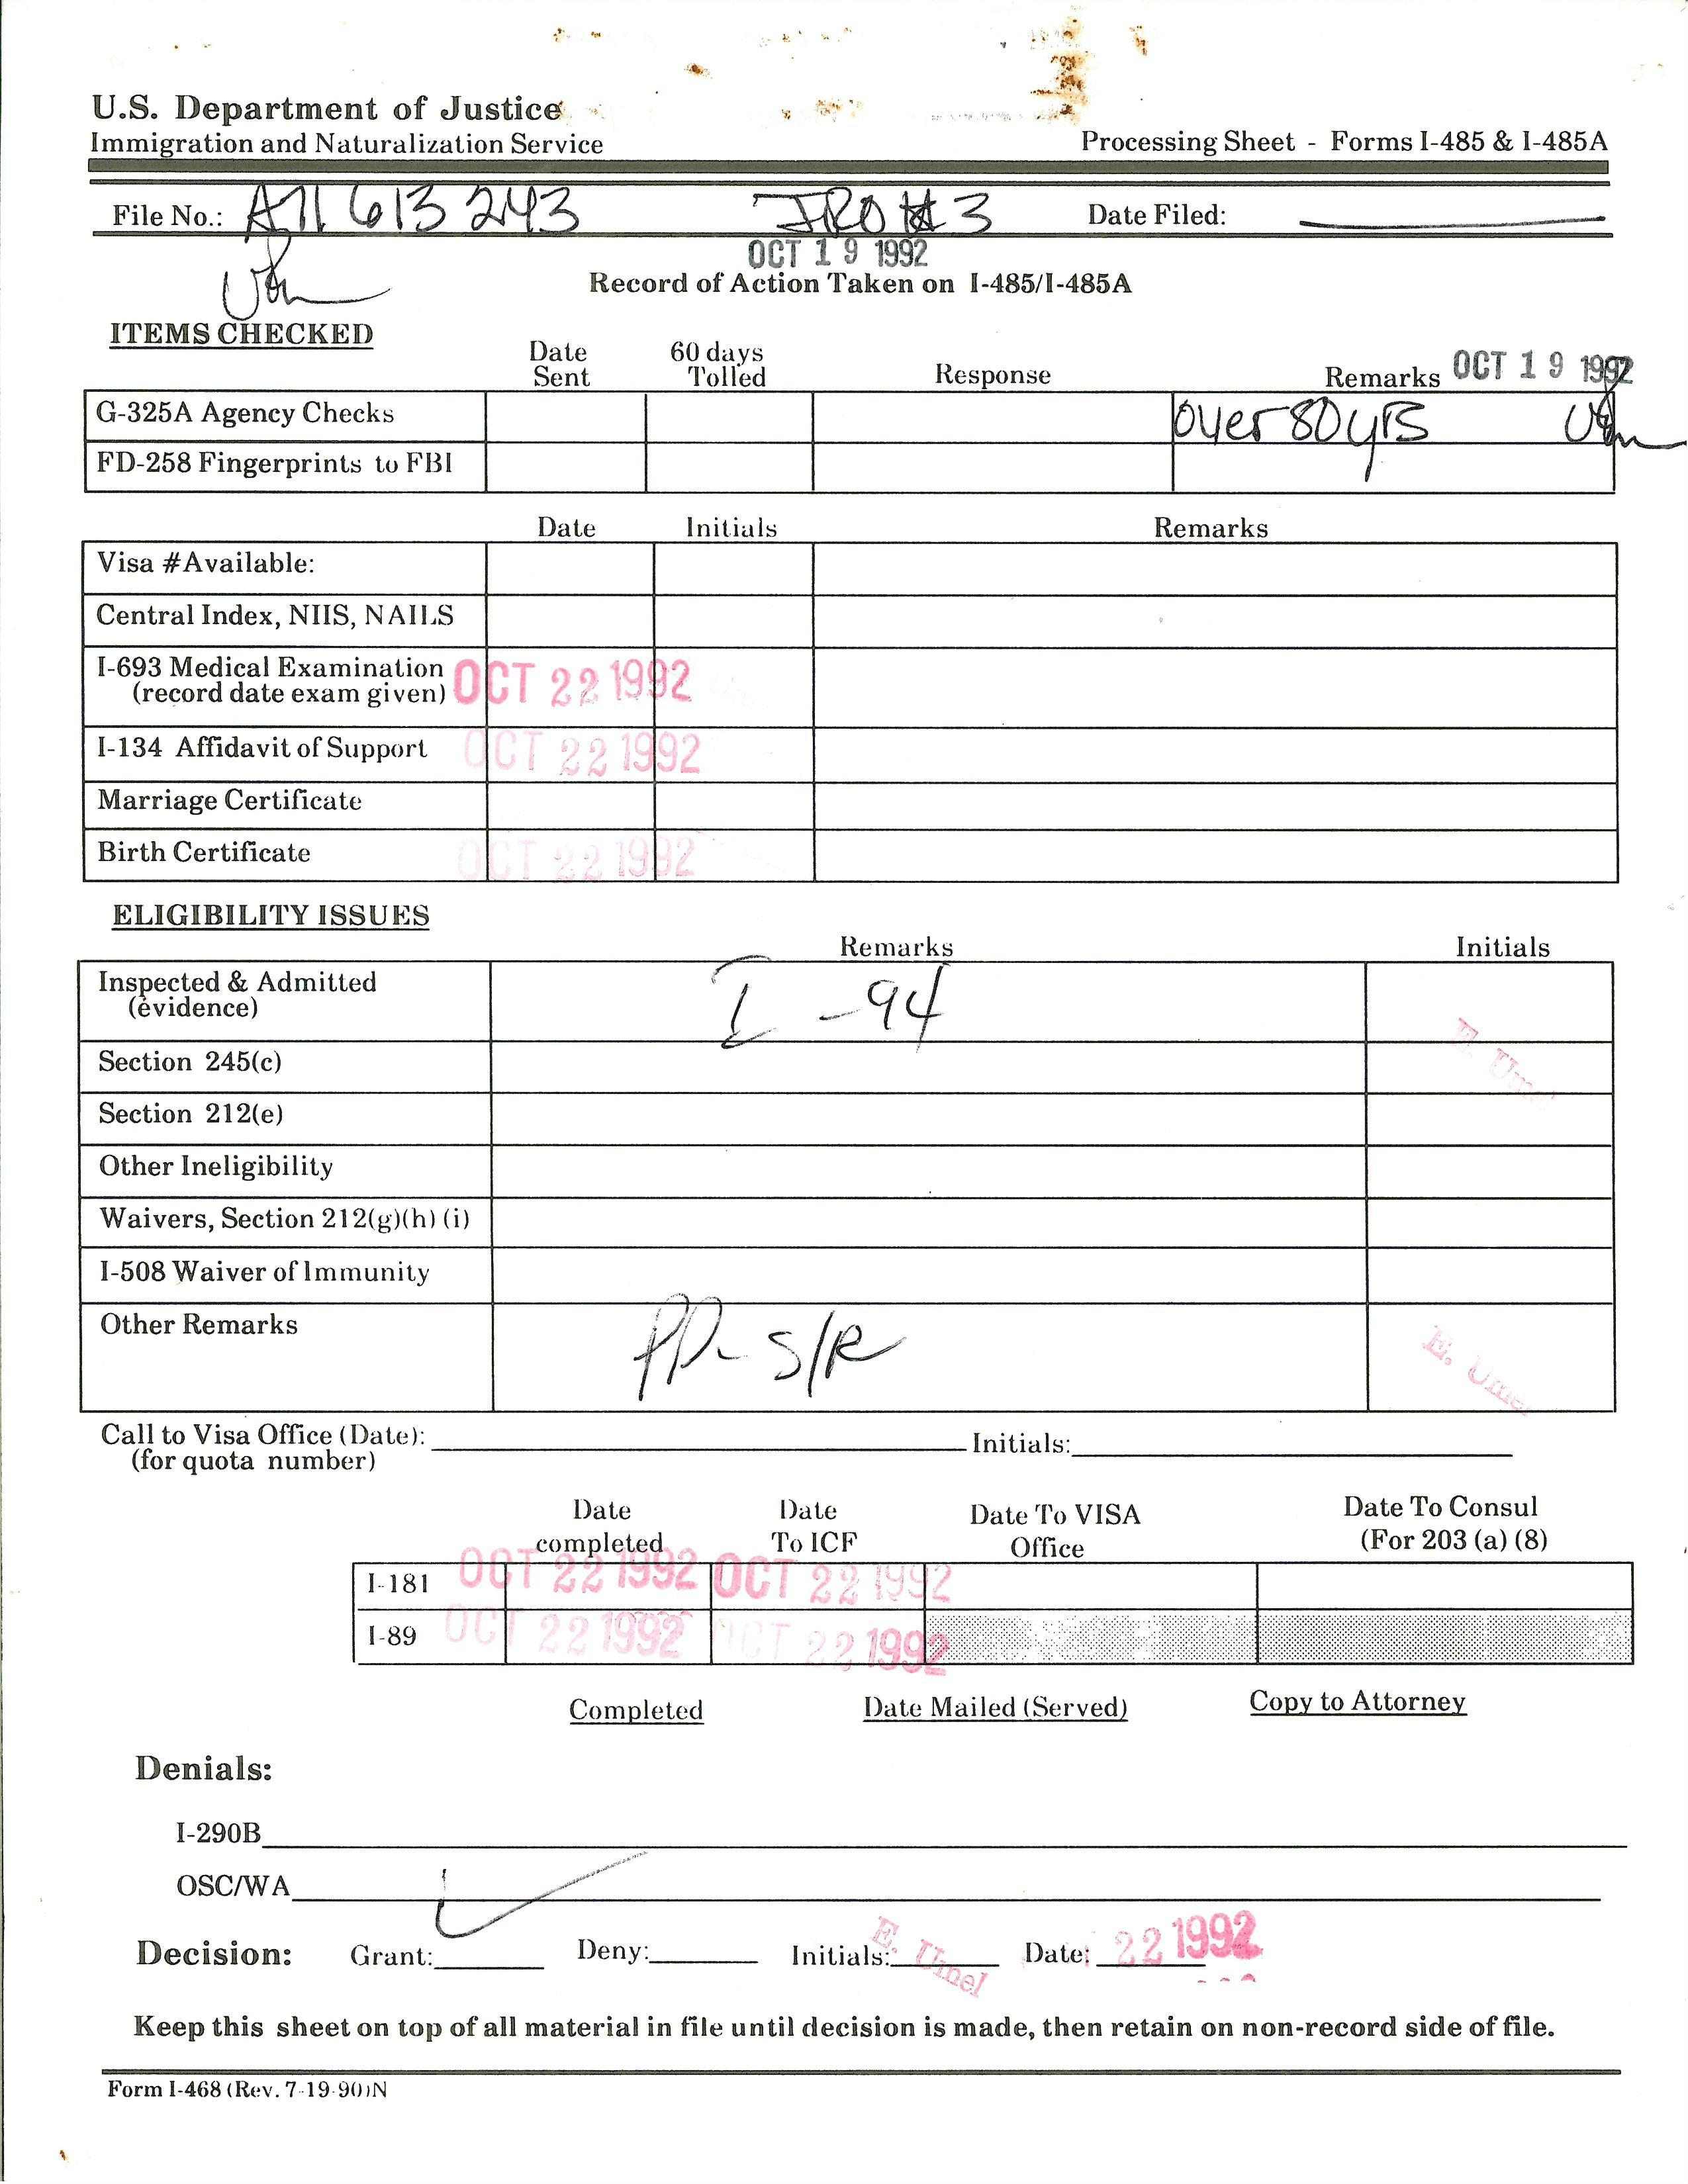 U.S. Department of Justice
Immigration and Naturalization Service
Processing Sheet - Forms I-485 & I-485A
File No.: A71 613 243 JRO #3 Date Filed:
OCT 19 1992
Record of Action Taken on I-485/I-485A
ITEMS CHECKED
Date Sent 60 days Tolled Response Remarks OCT 19 1992
G-325A Agency Checks over 80 yrs
FD-258 Fingerprints to FBI
Date Initials Remarks
Visa #Available:
Central Index, NIIS, NAILS
I-693 Medical Examination
(record date exam given) OCT 22 1992
I-134 Affidavit of Support OCT 22 1992
Marriage Certificate
Birth Certificate OCT 22 1992
ELIGIBILITY ISSUES
Remarks Initials
Inspected & Admitted
(evidence) I-94
Section 245(c) E. Ume
Section 212(e)
Other Ineligibility
Waivers, Section 212(g)(h) (i)
I-508 Waiver of Immunity
Other Remarks PP- S/R E. Umel
Call to Visa Office (Date): Initials:
(for quota number)
Date Date Date To VISA Date To Consul
completed To ICF Office (For 203 (a) (8)
I-181 OCT 22 1992 OCT 22 1992
I-89 OCT 22 1992 OCT 22 1992
Completed Date Mailed (Served) Copy to Attorney
Denials:
I-290B
OSC/WA
Decision: Grant: Deny: Initials: E. Umel Date: 22 1992
Keep this sheet on top of all material in file until decision is made, then retain on non-record side of file.
Form I-468 (Rev. 7-19-90)N